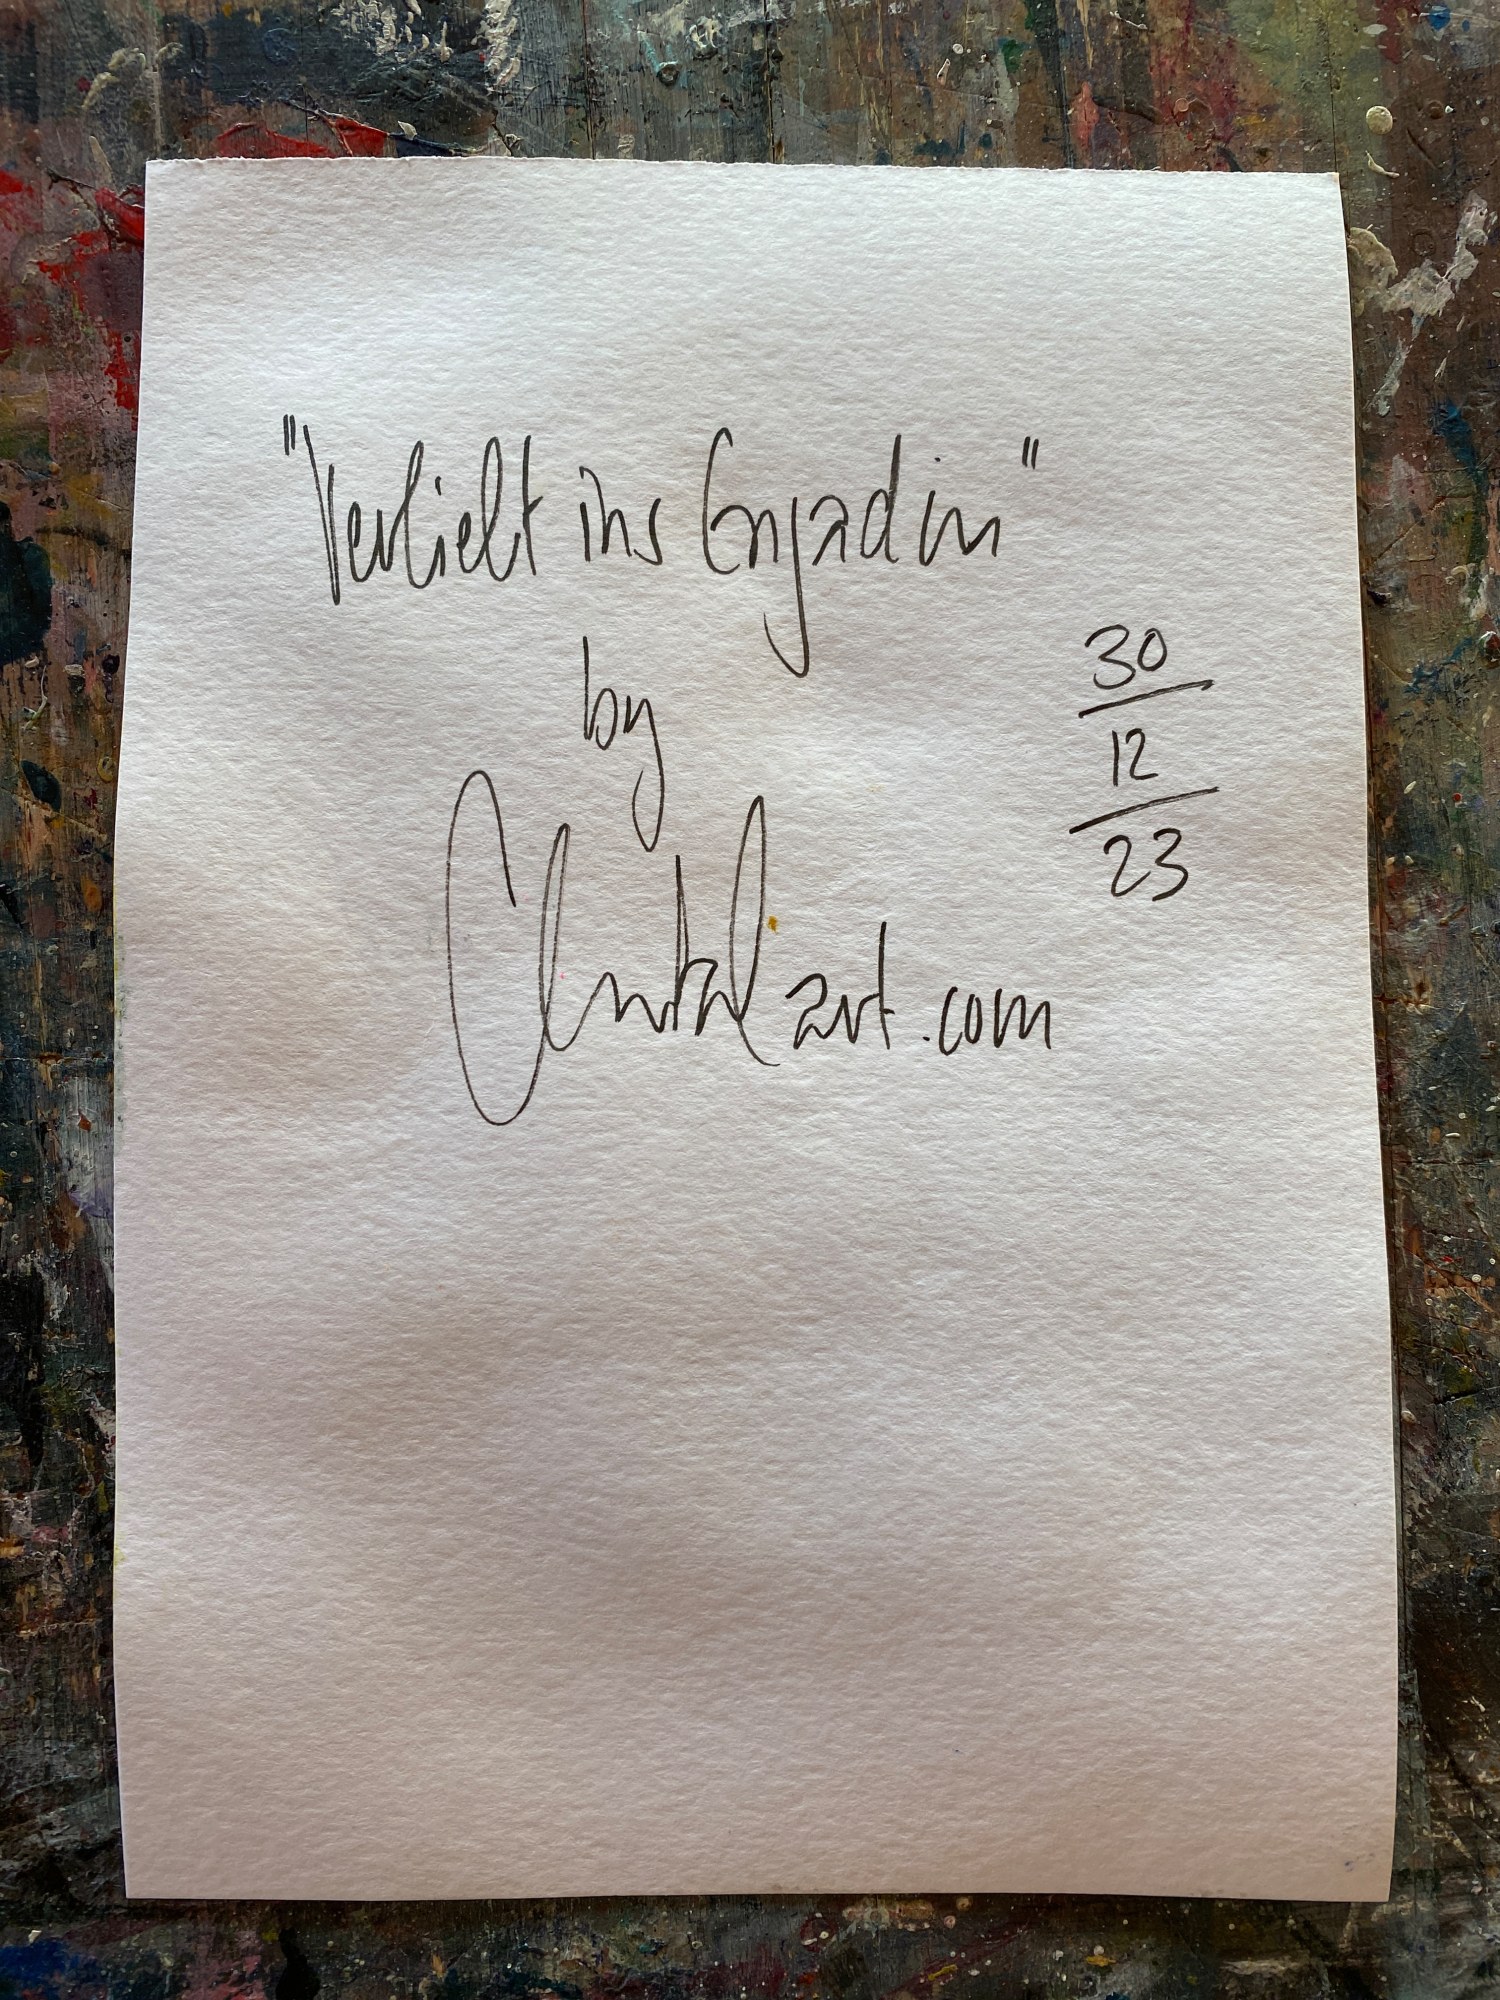 "Verliebt ins Engadin"
by
art.com
30
12
23